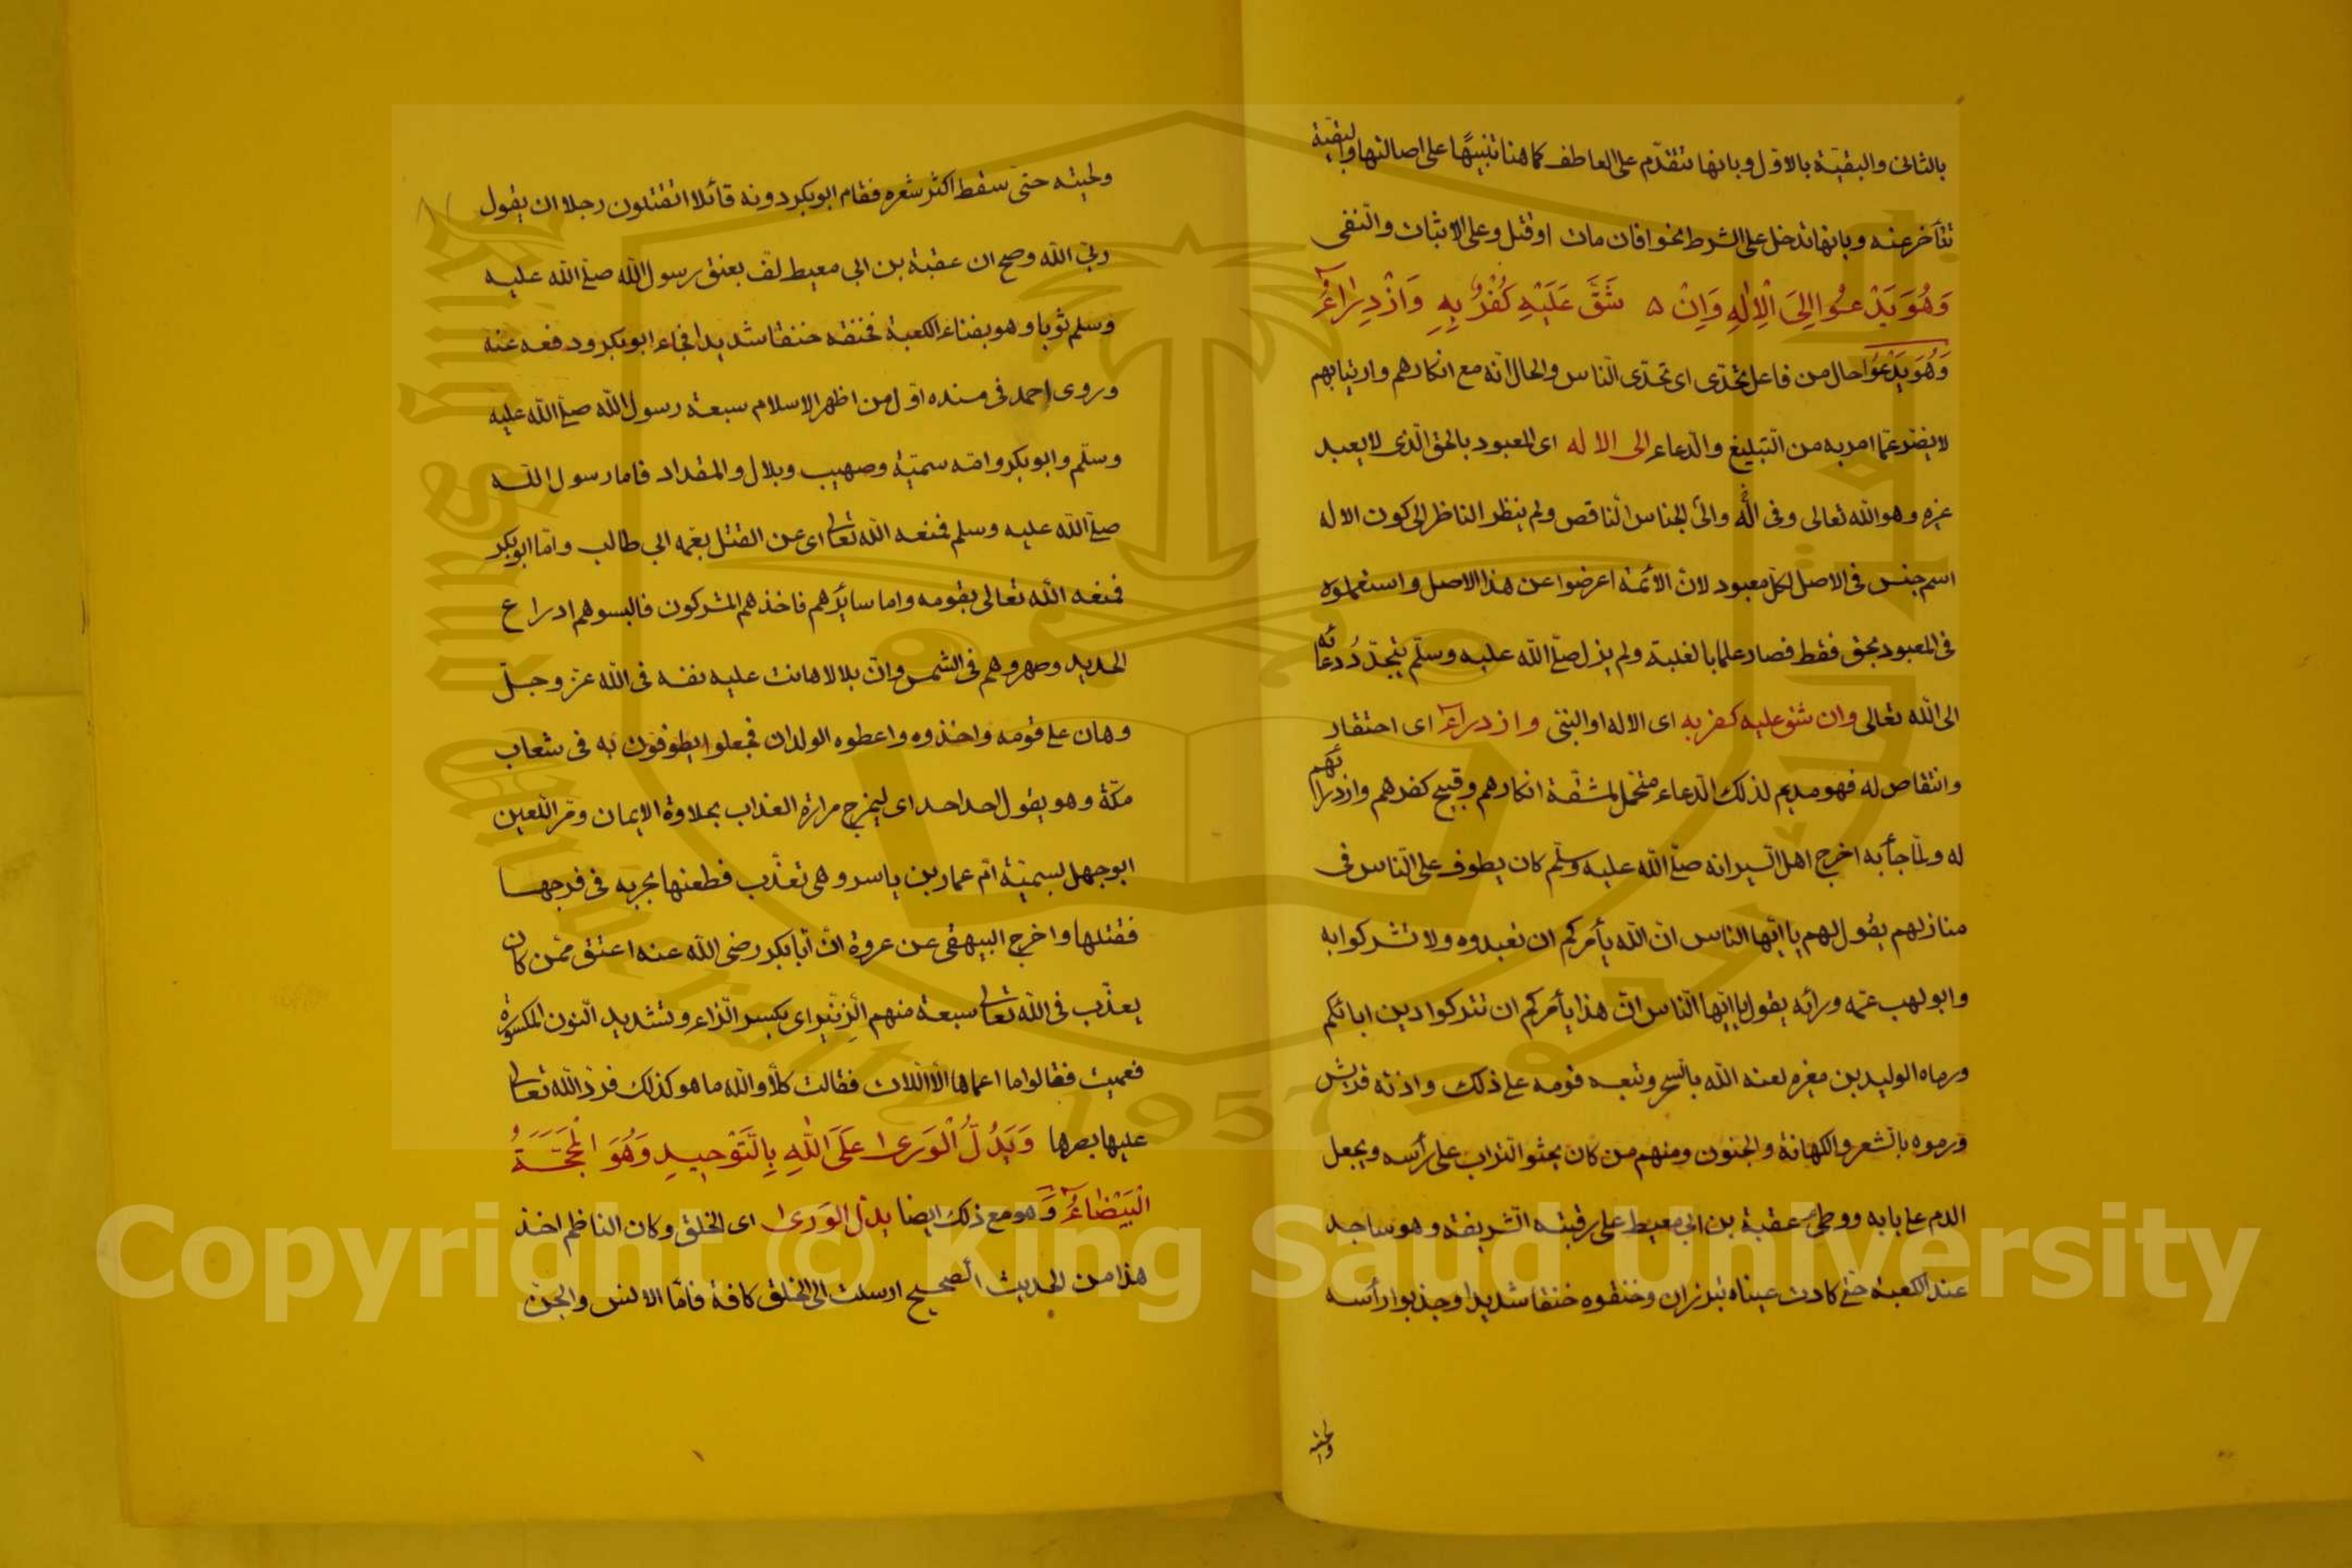 بالثانى والبقيّة بالاوّل وبانها تتقدّم على العاطف كما هنا تنبيهًا على اصالتها والبقيّة
تتأخر عنه وبانها تدخل على الشرط نحو افان مات او قتل وعلى الاثبات والنفى
وَهُوَ يَدْعُوا اِلىَ الْاِلٰهِ وَاِنْ ه شَقَّ عَلَيْهِ كُفْرٌ بِهِ وَازْدِرَاءُ
وَهُوَ يَدْعُوا حال من فاعل تحدّى اى تحدّى الناس والحال انه مع انكارهم وارتيابهم
لا يفتر عمّا امر به من التبليغ والدعاء الى الا له اى المعبود بالحق الّذى لا يعبد
غيره وهو الله تعالى وفى اله والى الجناس الناقص ولم ينظر الناظر الى كون الاله
اسم جنس فى الاصل لكل معبود لان الأئمة اعرضوا عن هذا الاصل واستعملوه
فى المعبود بحق فقط فصار علما بالغلبة ولم يزل صلّى الله عليه وسلّم يتجدّدُ دعائه
الى الله تعالى وان شق عليه كفر به اى الاله او النبى وازدراء اى احتقار
وانتقاص له فهو مديم لذلك الدعاء متحمّل لمشقّة انكارهم وقبيح كفرهم وازدرائهم
له ولما جأ به اخرج اهل السير انه صلّى الله عليه وسلّم كان يطوف على الناس فى
منازلهم يقول لهم يا ايّها الناس ان الله يأمركم ان تعبدوه ولا تشركوا به
وابو لهب عمّه ورائه يقول يا ايّها النّاس انّ هذا يأمركم ان تتركوا دين ابائكم
ورماه الوليد بن مغيره لعنه الله بالسّحر وتبعه قومه على ذلك واذته قريش
ورموه بالشعر والكهانة والجنون ومنهم من كان يحثو التراب على رأسه ويجعل
الدم على بابه ووطئ عقبة بن ابى معيط على رقبته الشريفة وهو ساجد
عند الكعبة حتى كادت عيناه تبرزان وخنقوه خنقا شديدا وجذبوا رأسه
ولحيته
ولحيته حتى سقط اكثر شعره فقام ابو بكر دونه قائلا اتقتلون رجلا ان يقول
ربّى الله وصح ان عقبة بن ابى معيط لف بعنق رسول الله صلّى الله عليه
وسلم ثوبا وهو بفناء الكعبة فخنقه خنقا شديدا فجاء ابو بكر ودفعه عنه
وروى احمد فى مسنده اوّل من اظهر الاسلام سبعة رسول الله صلّى الله عليه
وسلّم وابو بكر وامّه سميّة وصهيب وبلال والمقداد فاما رسول الله
صلّى الله عليه وسلم فمنعه الله تعالى اى عن القتل بعمّه ابى طالب وامّا ابو بكر
فمنعه الله تعالى بقومه واما سائرهم فاخذهم المشركون فالبسوهم ادراع
الحديد وصهروهم فى الشمس وانّ بلالا هانت عليه نفسه فى الله عزّ وجلّ
وهان على قومه واخذوه واعطوه الولدان فجعلوا يطوفون به فى شعاب
مكّة وهو يقول احد احد اى ليمزج مرارة العذاب بحلاوة الايمان ومرّ اللّعين
ابو جهل بسميّة امّ عمار بن ياسر وهى تعذّب فطعنها بحربه فى فرجها
فقتلها واخرج البيهقى عن عروة انّ أبا بكر رضى الله عنه اعتق ممّن كان
يعذّب فى الله تعالى سبعة منهم الزِنّير اى بكسر الزاء وتشديد النون المكسورة
فعميت فقالوا ما اعماها الّا اللات فقالت كلّا والله ما هو كذلك فردّ الله تعالى
عليها بصرها وَيَدُلُّ الْوَرىٰ عَلَى اللهِ بِالتَّوْحيدِ وَهُوَ الْمَحَجَّةُ
الْبَيْضَاءُ وَّ هو مع ذلك ايضا يدلّ الوَرىٰ اى الخلق وكان الناظم اخذ
هذا من الحديث الصحيح ارسلت الى الخلق كافة فامّا الانس والجنّ
Copyright © King Saud University
King Saud University
جامعة الملك سعود
1957